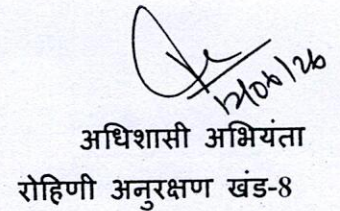 12/06/26
अधिशासी अभियंता
रोहिणी अनुरक्षण खंड-8